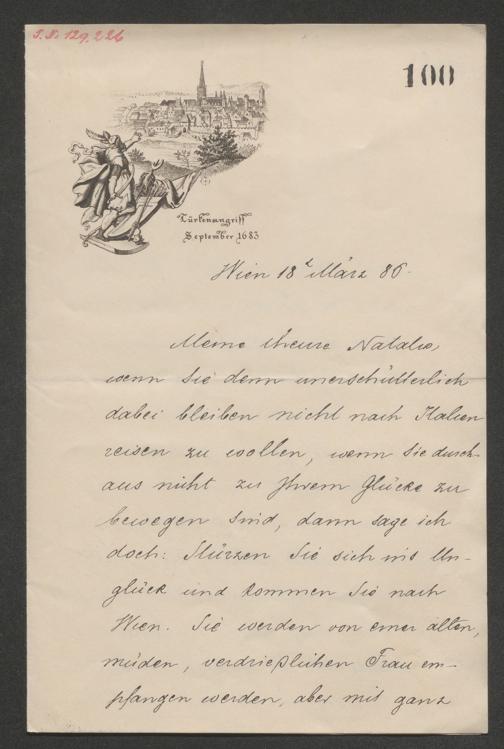 I.N. 129.226
100
Türkenangriff
September 1683
Wien 18t März 86.
Meine theure Natalie,
wenn Sie denn unerschütterlich
dabei bleiben nicht nach Italien
reisen zu wollen, wenn Sie durch-
aus nicht zu Ihrem Glücke zu
bewegen sind, dann sage ich
doch: Stürzen Sie sich ins Un-
glück und kommen Sie nach
Wien. Sie werden von einer alten,
müden, verdrießlichen Frau em-
pfangen werden, aber mit ganz